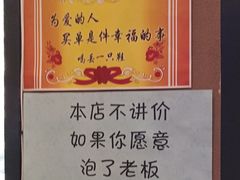 为爱的人
买单是件幸福的事
喝丢一只鞋
本店不讲价
如果你愿意
泡了老板